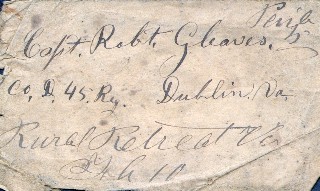 Capt. Robt. Gleaves.
Co. D. 45. Rg. Dublin. Va
Rural Retreat Va
Feb 10